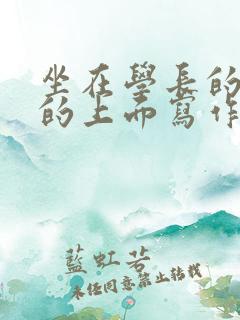 坐在學長的
的上面寫作
藍虹若
未經同意禁止轉載